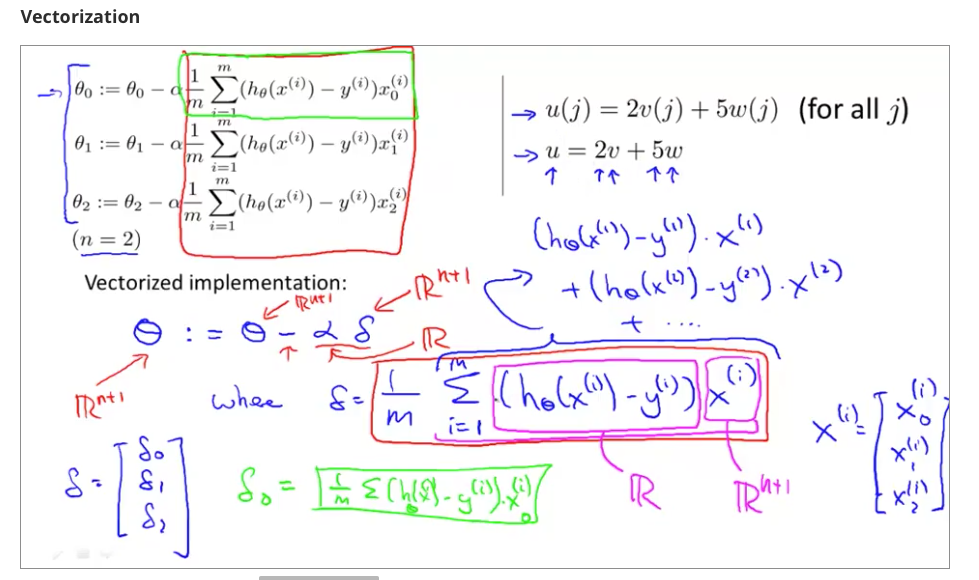 Vectorization
→ θ₀ := θ₀ − α 1/m ∑ᵢ₌₁ᵐ (h_θ(x⁽ⁱ⁾) − y⁽ⁱ⁾)x₀⁽ⁱ⁾
θ₁ := θ₁ − α 1/m ∑ᵢ₌₁ᵐ (h_θ(x⁽ⁱ⁾) − y⁽ⁱ⁾)x₁⁽ⁱ⁾
θ₂ := θ₂ − α 1/m ∑ᵢ₌₁ᵐ (h_θ(x⁽ⁱ⁾) − y⁽ⁱ⁾)x₂⁽ⁱ⁾
(n = 2)
→ u(j) = 2v(j) + 5w(j) (for all j)
→ u = 2v + 5w
↑ ↑↑ ↑↑
(h_θ(x⁽¹⁾) − y⁽¹⁾) · x⁽¹⁾
+ (h_θ(x⁽²⁾) − y⁽²⁾) · x⁽²⁾
+ ....
Vectorized implementation:
ℝⁿ⁺¹ ℝⁿ⁺¹
θ := θ − α δ
ℝⁿ⁺¹ ↑ ℝ
where δ = 1/m ∑ᵢ₌₁ᵐ (h_θ(x⁽ⁱ⁾) − y⁽ⁱ⁾) x⁽ⁱ⁾
ℝ ℝⁿ⁺¹
x⁽ⁱ⁾ = [x₀⁽ⁱ⁾
x₁⁽ⁱ⁾
x₂⁽ⁱ⁾]
δ = [δ₀
δ₁
δ₂]
δ₀ = 1/m ∑ (h_θ(x⁽ⁱ⁾) − y⁽ⁱ⁾) · x₀⁽ⁱ⁾